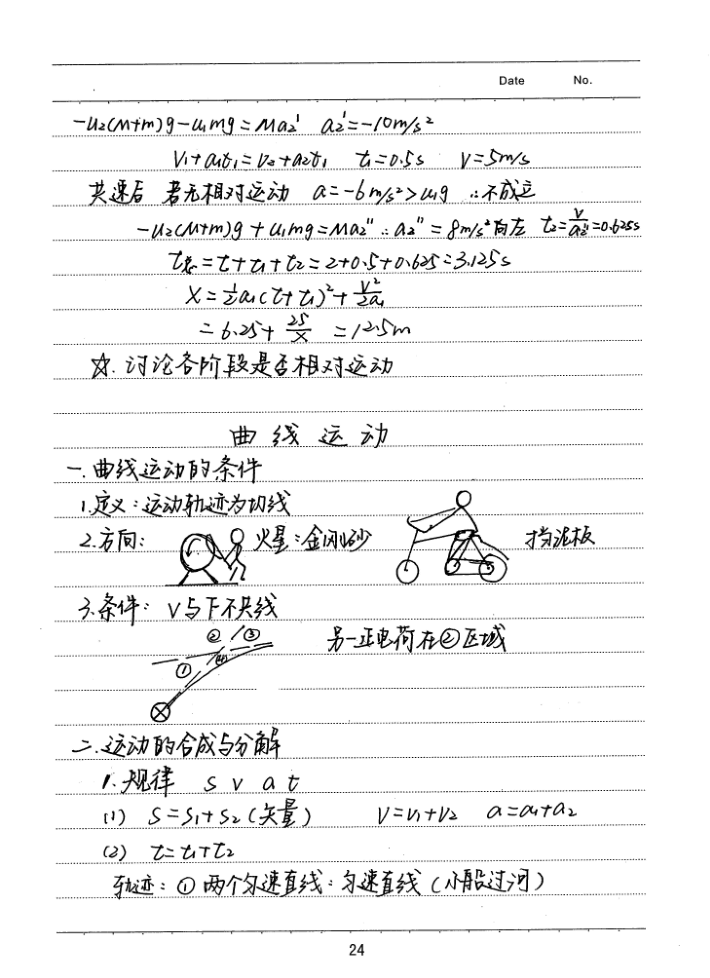 Date No.
-u₂(M+m)g-u₁mg=Ma₂' a₂'=-10m/s²
V₁+a₁t₁=V₂+a₂t₁ t₁=0.5s V=5m/s
共速后 若无相对运动 a=-6m/s²>u₁g ∴不成立
-u₂(M+m)g+u₁mg=Ma₂'' ∴a₂''=8m/s²向左 t₂=V/a₂''=0.625s
t总=t+t₁+t₂=2+0.5+0.625=3.125s
X=½a₁(t+t₁)²+V²/2a₁
=6.25+25/X =12.5m
☆.讨论各阶段是否相对运动
曲线运动
一.曲线运动的条件
1.定义:运动轨迹为切线
2.方向: 火星:金刚砂 挡泥板
3.条件: V与F不共线
② ③
① (4) 另一正电荷在②区域
二.运动的合成与分解
1.规律 s v a t
(1) S=S₁+S₂(矢量) V=V₁+V₂ a=a₁+a₂
(2) t=t₁+t₂
轨迹:①两个匀速直线:匀速直线(小船过河)
24